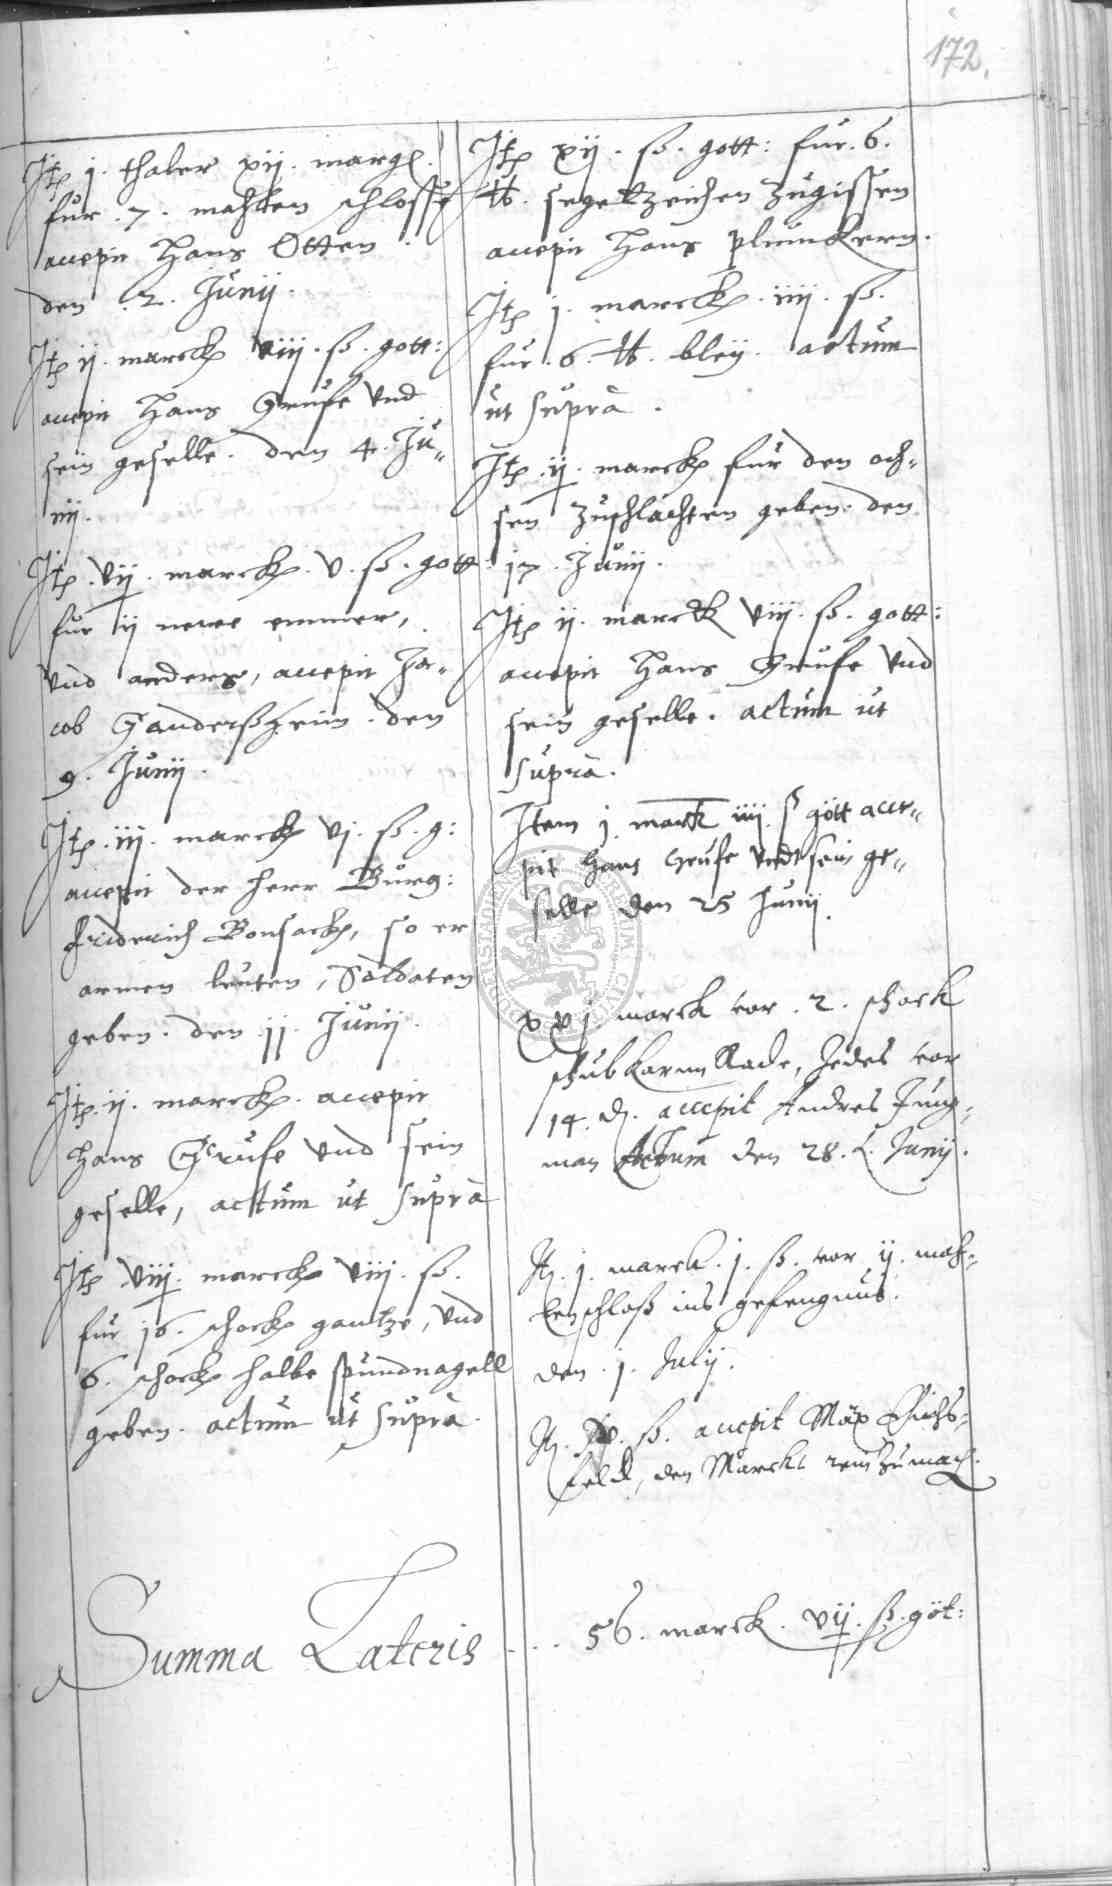 172.
Itē j. thaler xij. margḡ.
für .7. mahlen schlosse
accepit Hans Otten
den 2. Junij.
Itē ij. marck viij. ß. gott:
accepit Hans Grufe vnd
sein geselle. den 4. Ju-
nij.
Itē vij. marck v. ß. gott:
für ij newe emmer,
vnd anders, accepit Ja-
cob Gandersheim. den
9. Junij.
Itē iij. marck vj. ß. g:
accepit der herr Burg:
Friderich Bonsack, so er
armen leuten, Soldaten
geben. den 11 Junij.
Itē ij. marck accepit
Hans Grufe vnd sein
geselle, actum ut supra
Itē viij. marck viij. ß.
für 16. schock gantze, vnd
6. schock halbe spundnagell
geben. actum ut supra.
Itē xij. ß. gott: für .6.
℔. segelzeichen zugissen
accepit Hans Plunckern.
Itē j. marck iiij. ß.
für .6. ℔. bleij. actum
ut supra.
Itē ij. marck für den och-
sen zuschlachten geben. den
17. Junij.
Itē ij. marck viij. ß. gott:
accepit Hans Grufe vnd
sein geselle. actum ut
supra.
Item j. marck iiij. ß gött acce-
pit Hans Grufe vndt sein ge-
selle den 25 Junij.
xvj. marck vor .2. schock
schubkarnn Rade, Jedes vor
14. d. accepit Andres Jung-
man Actum den 28. Junij.
It. j. marck. j. ß. vor ij. mah-
lenschloß ins gefengnus.
den .j. Julij.
It. ß. accepit Max Eichs-
feld, den Marckt rein zu mach.
Summa Lateris ... 56. marck. vij. ß. göt: